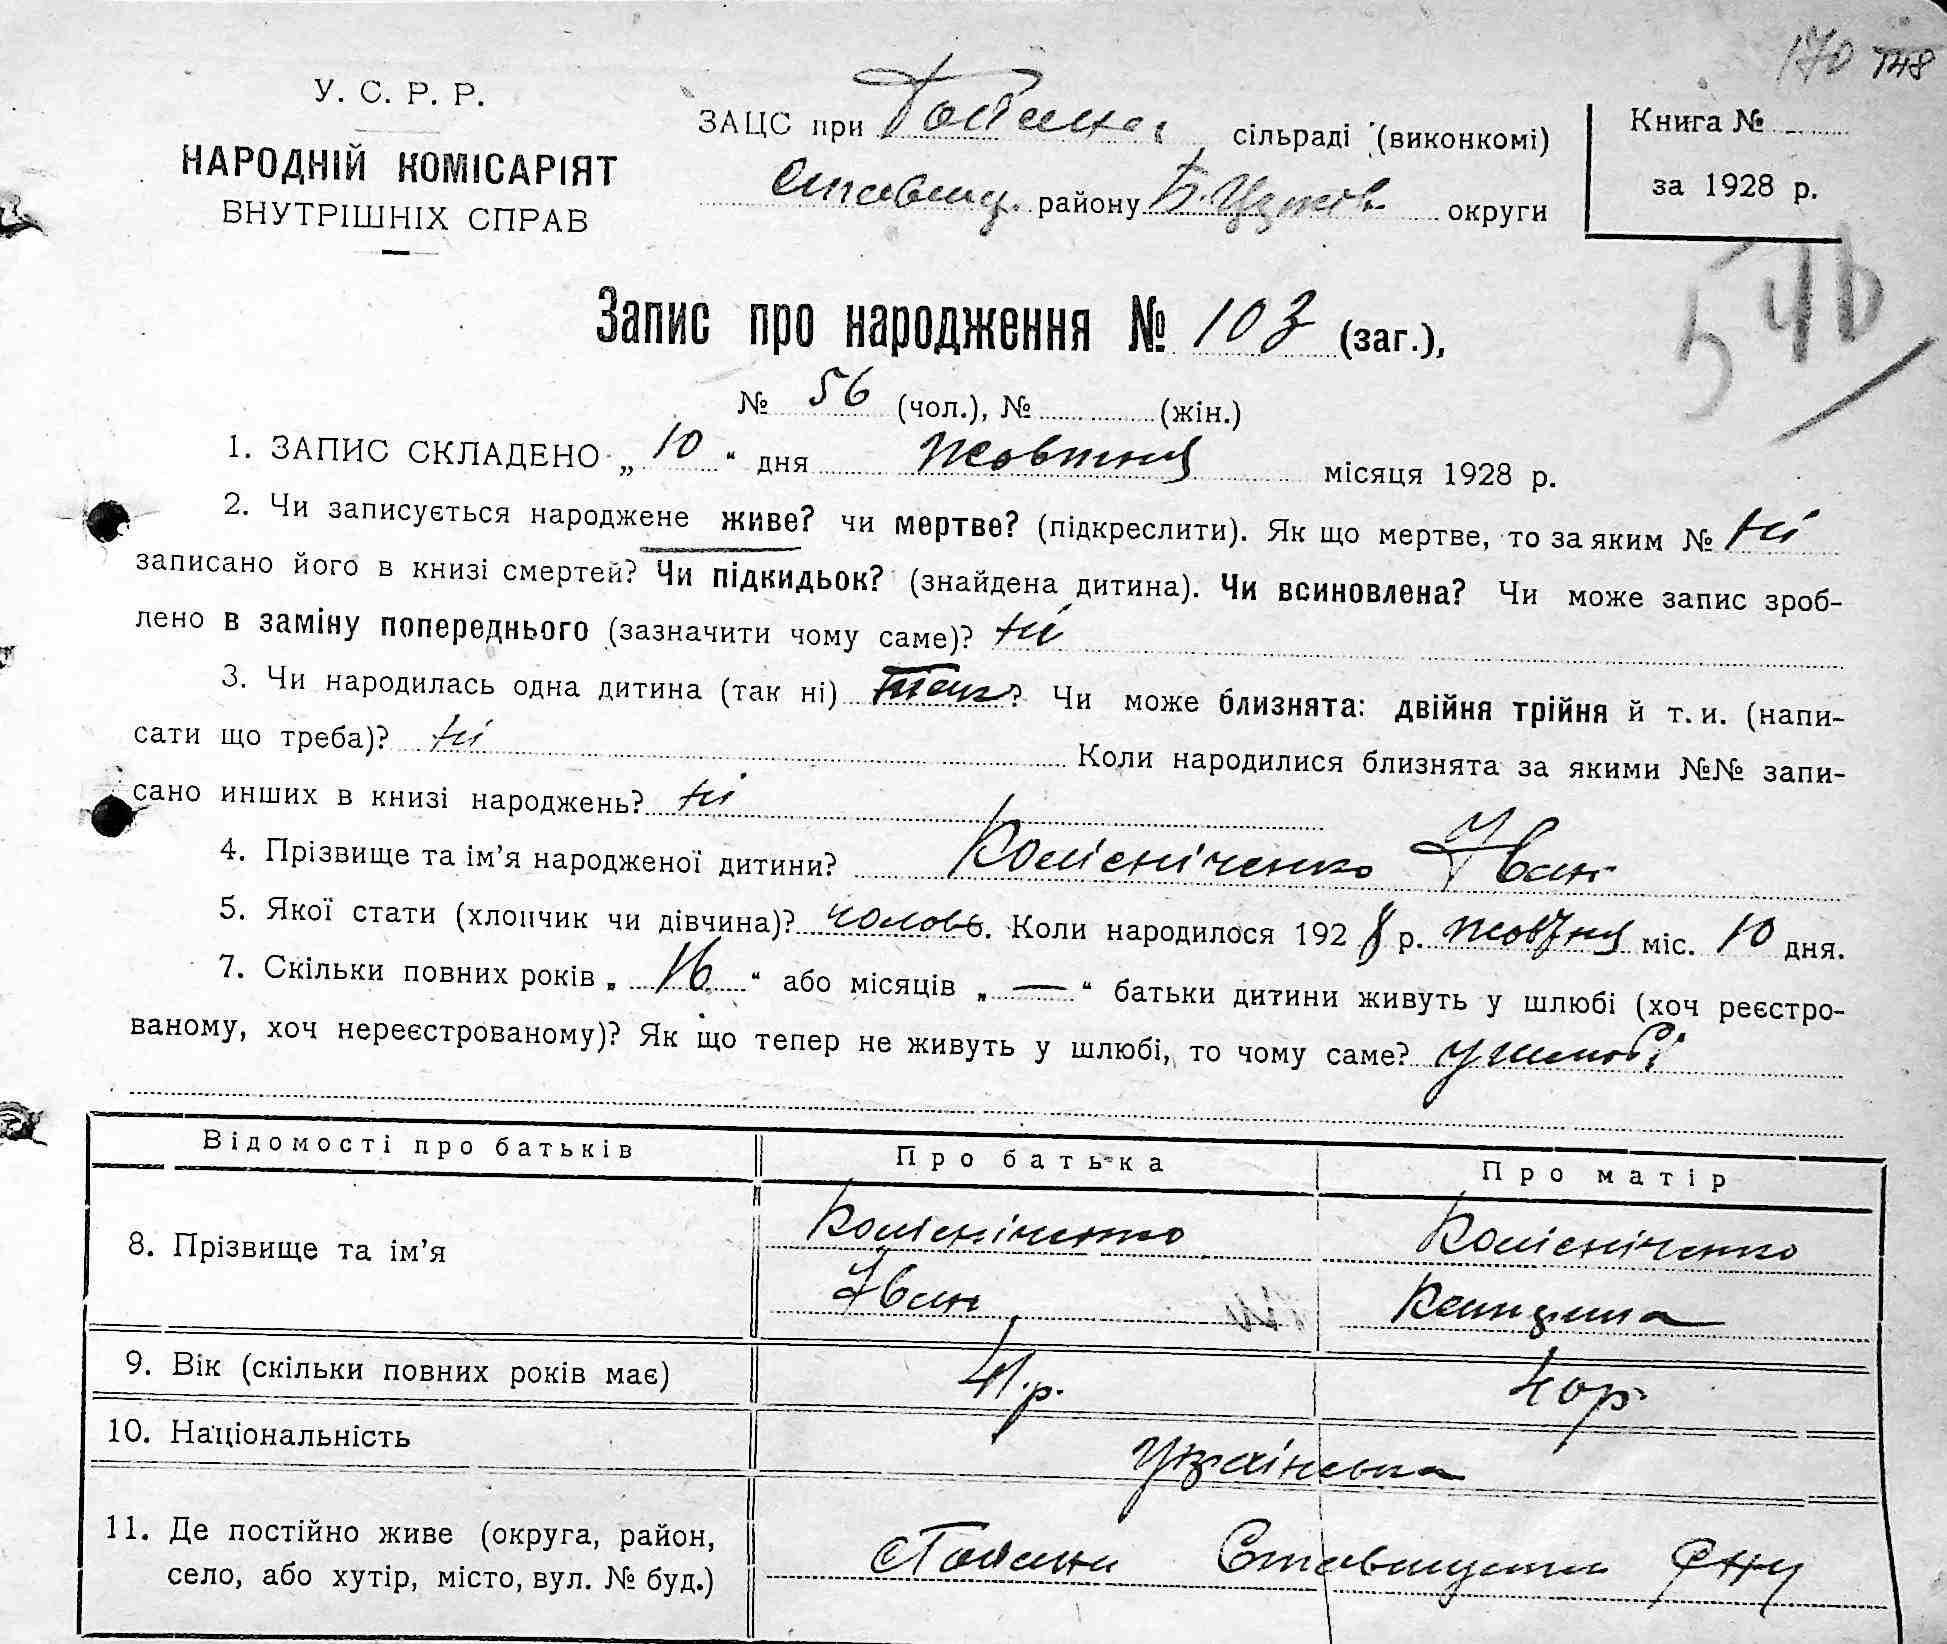 170 748
У. С. Р. Р.
НАРОДНІЙ КОМІСАРІЯТ
ВНУТРІШНІХ СПРАВ
ЗАЦС при сільраді (виконкомі)
Ставищ. району Б. Церків округи
Книга №
за 1928 р.
546
Запис про народження № 103 (заг.),
№ 56 (чол.), № (жін.)
1. ЗАПИС СКЛАДЕНО „ 10 “ дня жовтня місяця 1928 р.
2. Чи записується народжене живе? чи мертве? (підкреслити). Як що мертве, то за яким № ні
записано його в книзі смертей? Чи підкидьок? (знайдена дитина). Чи всиновлена? Чи може запис зроб-
лено в заміну попереднього (зазначити чому саме)? ні
3. Чи народилась одна дитина (так ні) так? Чи може близнята: двійня трійня й т. и. (напи-
сати що треба)? ні Коли народилися близнята за якими №№ запи-
сано инших в книзі народжень? ні
4. Прізвище та ім’я народженої дитини? Колісніченко Іван
5. Якої стати (хлопчик чи дівчина)? чолов. Коли народилося 1928 р. жовтня міс. 10 дня.
7. Скільки повних років „ 16 “ або місяців „ — “ батьки дитини живуть у шлюбі (хоч реєстро-
ваному, хоч нереєстрованому)? Як що тепер не живуть у шлюбі, то чому саме? у шлюбі
Відомості про батьків Про батька Про матір
8. Прізвище та ім’я Колісніченко Колісніченко
Іван
9. Вік (скільки повних років має) 41 р. 40 р
10. Національність Українська
11. Де постійно живе (округа, район,
село, або хутір, місто, вул. № буд.)